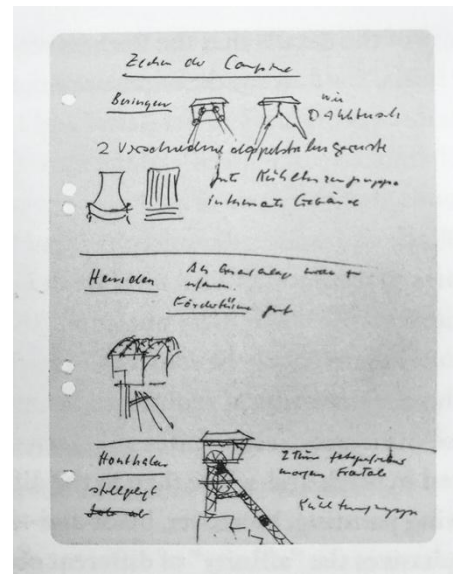 Zechen der Campine
Beringen
wie
Dahlbusch
2 verschiedene doppelstrebengerüste
gute Kühlturmgruppe
interessante Gebäude
Heusden
Als Gesamtanlage
Fördertürme gut
Houthalen
stillgelegt
2 Türme fotografieren
morgens Frontale
Kühlturmgruppe